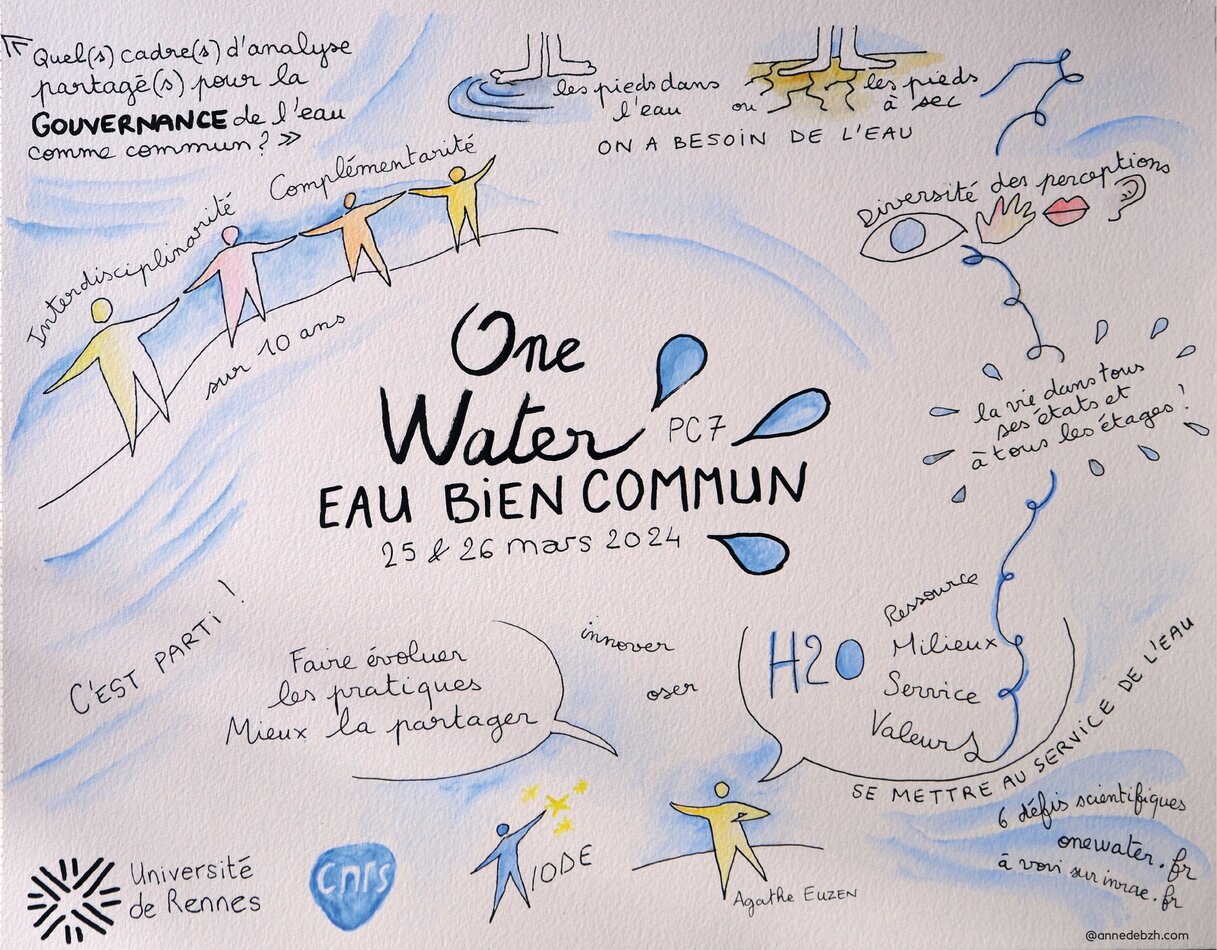 « Quel(s) cadre(s) d'analyse
partagé(s) pour la
GOUVERNANCE de l'eau
comme commun ? »
les pieds dans
l'eau
ou
les pieds
à sec
ON A BESOIN DE L'EAU
Diversité des perceptions
Interdisciplinarité
Complémentarité
sur 10 ans
One
Water
PC7
EAU BIEN COMMUN
25 & 26 mars 2024
la vie dans tous
ses états et
à tous les étages !
C'EST PARTI !
Faire évoluer
les pratiques
Mieux la partager
innover
oser
H2O
Ressource
Milieux
Service
Valeurs
SE METTRE AU SERVICE DE L'EAU
6 défis scientifiques
onewater.fr
à voir sur inrae.fr
Université
de Rennes
cnrs
IODE
Agathe EUZEN
@annedebzh.com